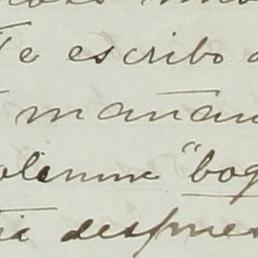 Te escribo
mañan
olemne "bog
despues